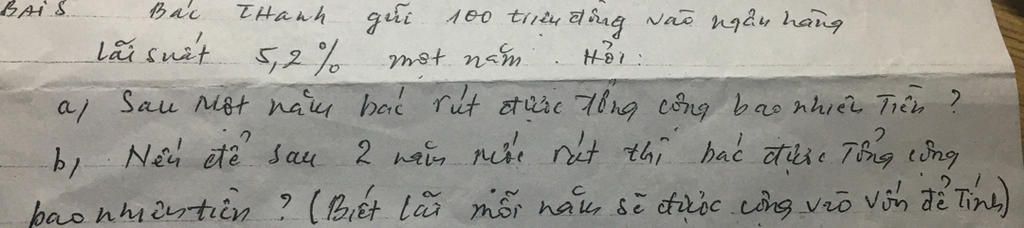 BÀI 5 Bác Thanh gửi 100 triệu đồng vào ngân hàng
lãi suất 5,2% một năm. Hỏi:
a) Sau một năm bác rút được tổng cộng bao nhiêu tiền?
b) Nếu để sau 2 năm mới rút thì bác được tổng cộng
bao nhiêu tiền? (Biết lãi mỗi năm sẽ được cộng vào vốn để tính)